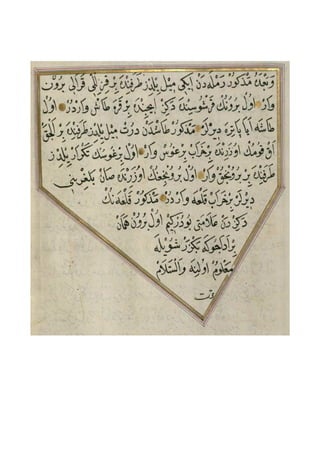 وبعده مذكور رمله دن ايكى ميل يلدز طرفنده بر قزللى قرالى برون
وار اول برونك قرشوسنده دكز ايچنده بر قره طاش واردر اول
طاشه آيا پتره ديرلر مذكور طاشدن درت ميل يلدز طرفنده بر آلچق
آق قومك اوزرنده بر خراب برغوس وار اول برغوسدن تكرار يلدز
طرفنده بر برونجق وار اول برونجغك اوزرنده صان
ديرلر بر خراب قلعه واردر مذكور قلعه نك
دكزدن علامتى بودركيم اول برون همان
بر اداجوغه بكزر شويله
معلوم اولينه والسلام
تمت